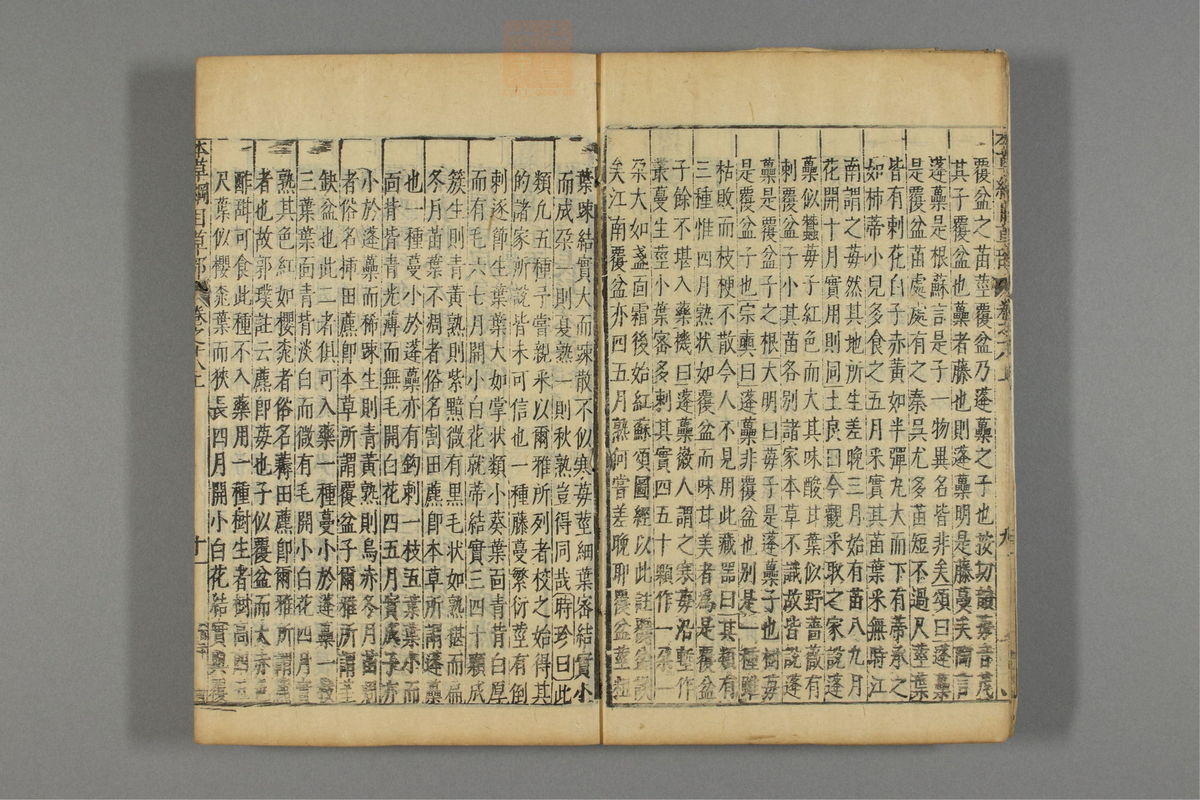 覆盆之苗莖覆盆乃蓬虆之子也按切韻莓音茂
其子覆盆也虆者藤也則蓬虆明是藤蔓矣陶言
蓬虆是根蘇言是子一物異名皆非矣頌曰蓬虆
是覆盆苗處處有之秦吳尤多苗短不過尺莖葉
皆有刺花白子赤黃如半彈丸大而下有蒂承之
如柿蒂小兒多食之五月采實其苗葉采無時江
南謂之莓然其地所生差晚三月始有苗八九月
花開十月實用則同士良曰今觀采取之家說蓬
虆似蠶莓子紅色而大其味酸甘葉似野薔薇有
刺覆盆子小其苗各別諸家本草不識故皆說蓬
虆是覆盆子之根大明曰莓子是蓬虆子也樹莓
是覆盆子也宗奭曰蓬虆非覆盆也別是一種雖
枯敗而枝梗不散今人不見用此藏器曰其類有
三種惟四月熟状如覆盆而味甘美者為是覆盆
子餘不堪入藥機曰蓬虆徽人謂之寒莓沿塹作
叢蔓生莖小葉密多刺其實四五十顆作一朶一
朶大如盞面霜後始紅蘇頌圖經以此註覆盆誤
矣江南覆盆亦四五月熟何嘗差晚耶覆盆莖粗
葉踈結實大而踈散不似寒莓莖細葉密結實小
而成朶一則夏熟一則秋熟豈得同哉時珍曰此
類凡五種予嘗親采以爾雅所列者校之始得其
的諸家所說皆未可信也一種藤蔓繁衍莖有倒
刺逐節生葉葉大如掌状類小葵葉面青背白厚
而有毛六七月開小白花就蒂結實三四十顆成
簇生則青黃熟則紫黯微有黑毛状如熟椹而扁
冬月苗葉不凋者俗名割田藨即本草所謂蓬虆
也一種蔓小於蓬虆亦有鈎刺一枝五葉葉小而
面背皆青光薄而無毛開白花四五月實成子亦
小於蓬虆而稀踈生則青黃熟則烏赤冬月苗凋
者俗名插田藨即本草所謂覆盆子爾雅所謂茥
缺盆也此二者俱可入藥一種蔓小於蓬虆一枝
三葉葉面青背淡白而微有毛開小白花四月實
熟其色紅如櫻桃者俗名薅田藨即爾雅所謂藨
者也故郭璞註云藨即莓也子似覆盆而大赤
酢甜可食此種不入藥用一種樹生者樹高四五
尺葉似櫻桃葉而狹長四月開小白花結實與覆
本草綱目草部 卷之十八上 十一